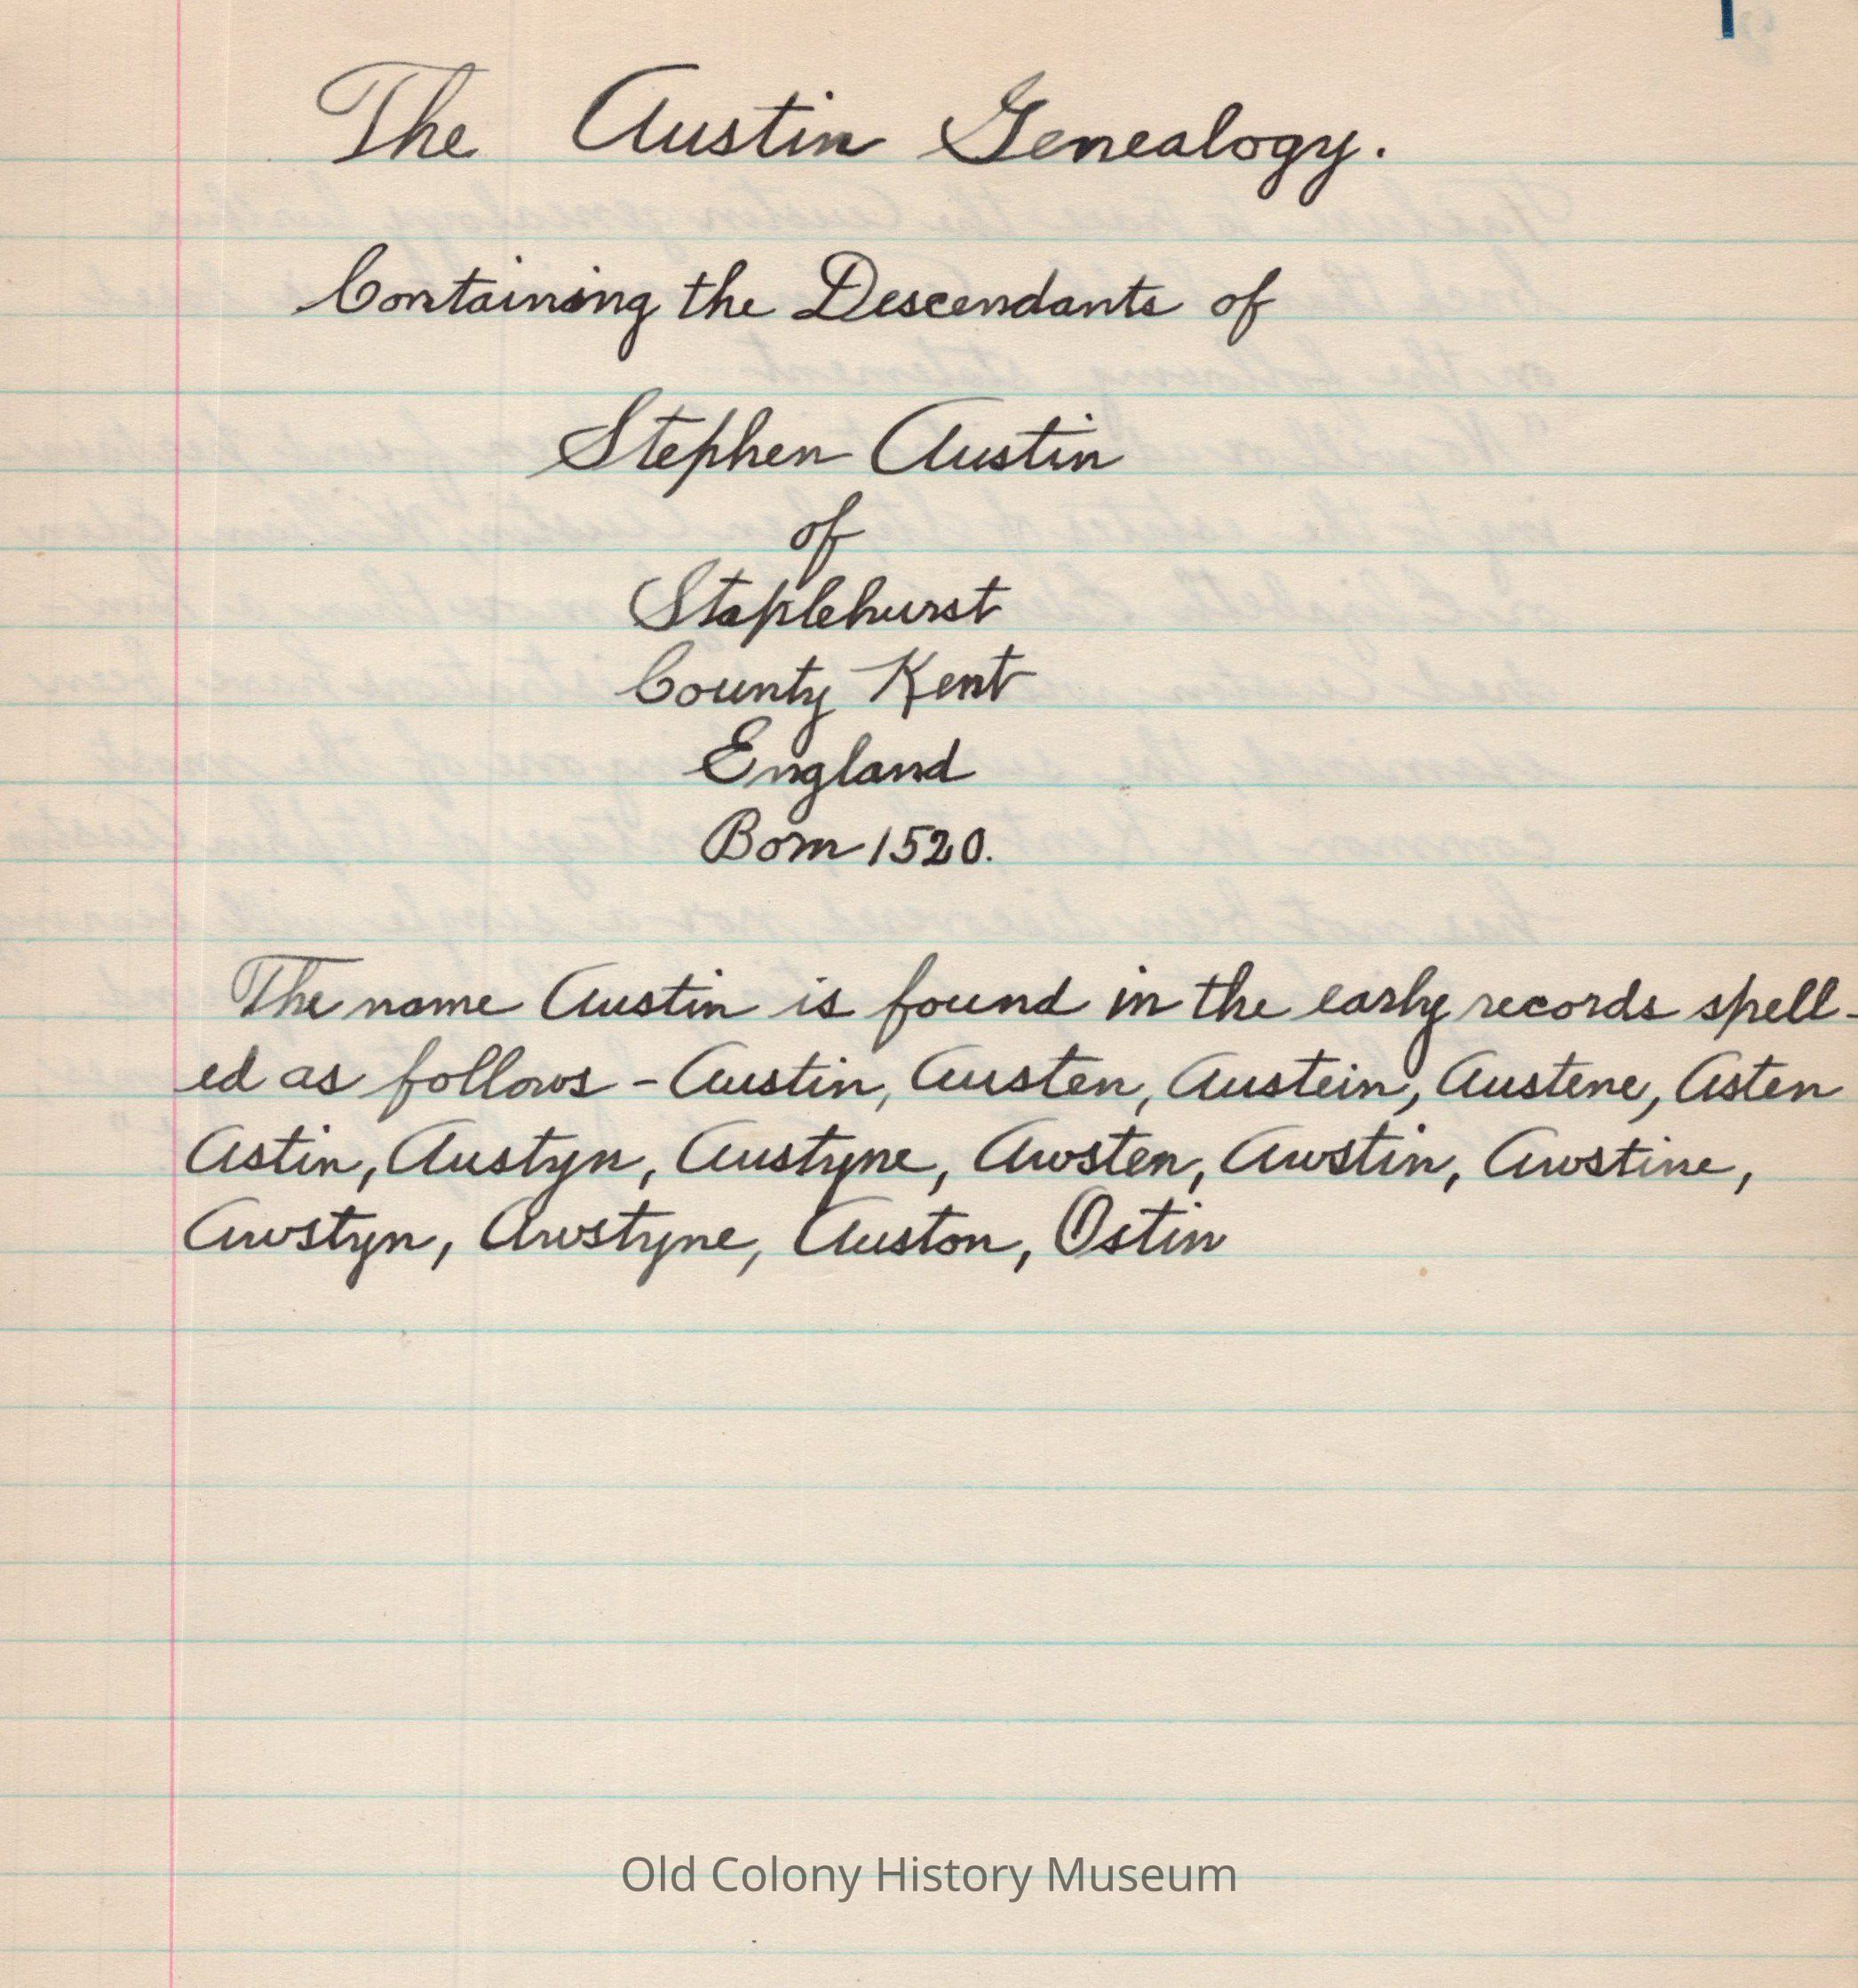 The Austin Genealogy.
Containing the Descendants of
Stephen Austin
of
Staplehurst
County Kent
England
Born 1520.
The name Austin is found in the early records spell-
ed as follows - Austin, Austen, Austein, Austene, Asten
Astin, Austyn, Austyne, Awsten, Awstin, Awstine,
Awstyn, Awstyne, Auston, Ostin
Old Colony History Museum